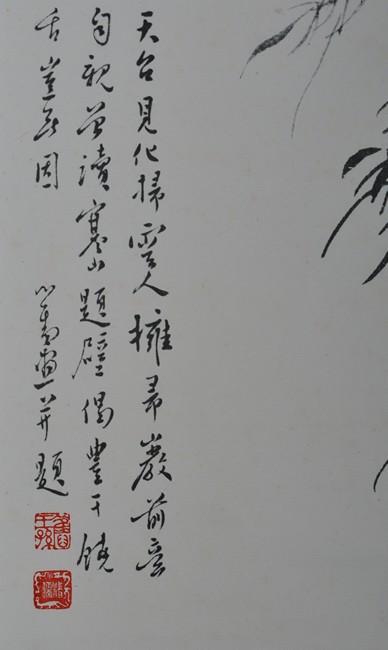 天台見化掃雲人擁帚巖前意
自親曾讀寒山題壁偈豐干饒
舌豈無因 心畬畫并題
舊王孫